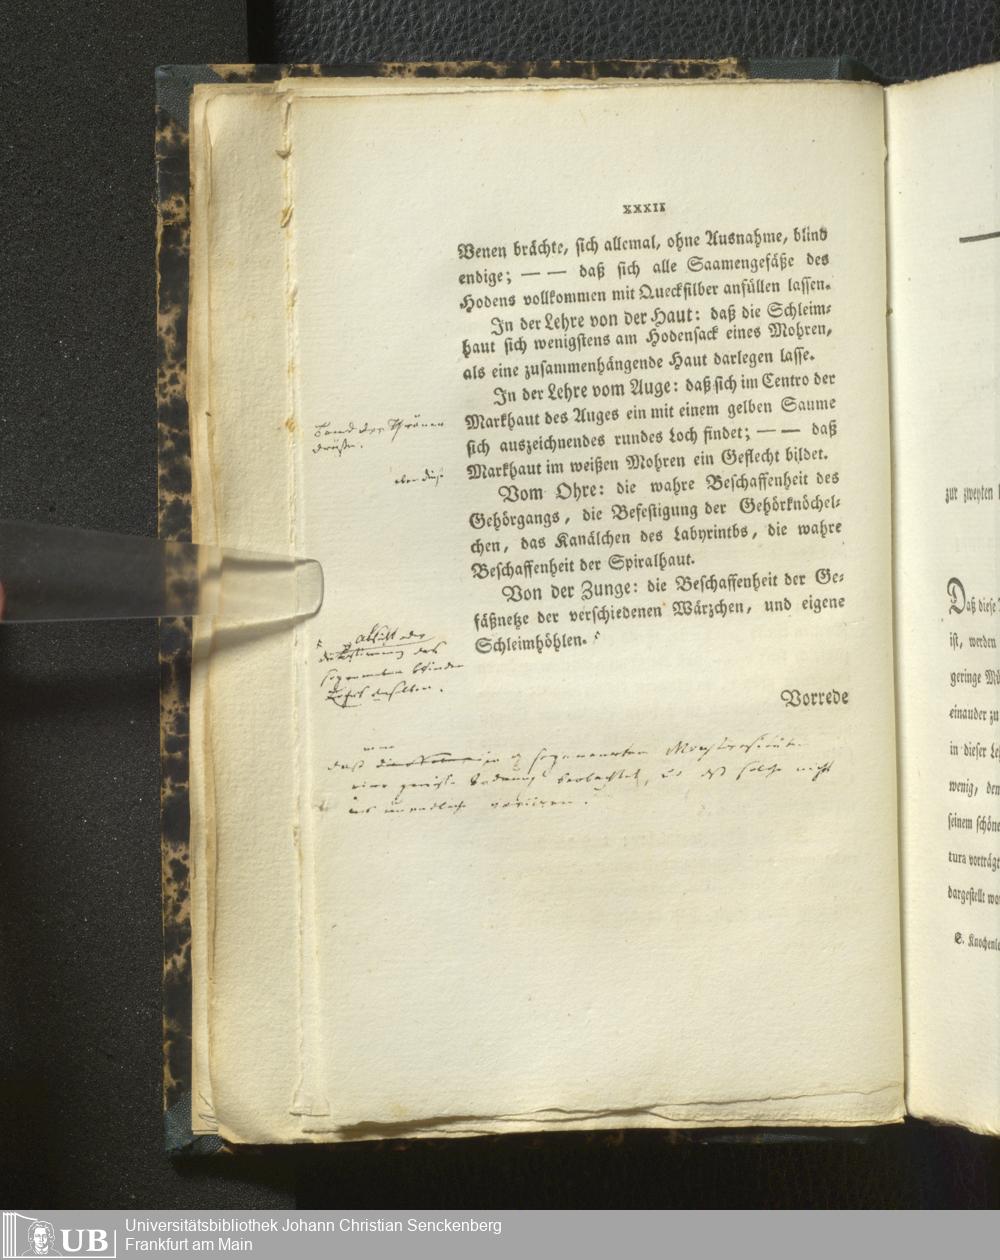 XXXII
Venen brächte, sich allemal, ohne Ausnahme, blind
endige; — — daß sich alle Saamengefäße des
Hodens vollkommen mit Quecksilber anfüllen lassen.
In der Lehre von der Haut: daß die Schleim-
haut sich wenigstens am Hodensack eines Mohren,
als eine zusammenhängende Haut darlegen lasse.
In der Lehre vom Auge: daß sich im Centro der
Markhaut des Auges ein mit einem gelben Saume
sich auszeichnendes rundes Loch findet; — — daß
Markhaut im weißen Mohren ein Geflecht bildet.
Vom Ohre: die wahre Beschaffenheit des
Gehörgangs, die Befestigung der Gehörknöchel-
chen, das Kanälchen des Labyrinths, die wahre
Beschaffenheit der Spiralhaut.
Von der Zunge: die Beschaffenheit der Ge-
fäßnetze der verschiedenen Wärzchen, und eigene
Schleimhöhlen.
Vorrede
daß
sogenannten
eine gewisse Ordnung beobachtet, daß solche nicht
ins unendliche variiren.
zur zweyten
Daß diese
ist, werden
geringe
einander zu
in dieser
wenig, den
seinem schöne
tura vorträgt
dargestellt
S. Knochenle
UB
Universitätsbibliothek Johann Christian Senckenberg
Frankfurt am Main